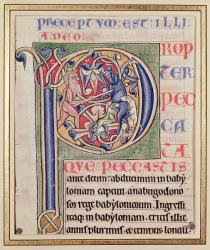 PRECEPTUM: EST: ILLI:
A DEO:
P
ROP
TER
PEC
CA
TA
QVE PECCASTIS
ante deum: abducimini in baby
loniam captiui a nabugodono
sor rege babyloniorum. Ingressi
itaq; in babyloniam, eritis illic
annis plurimis & temporibus longis